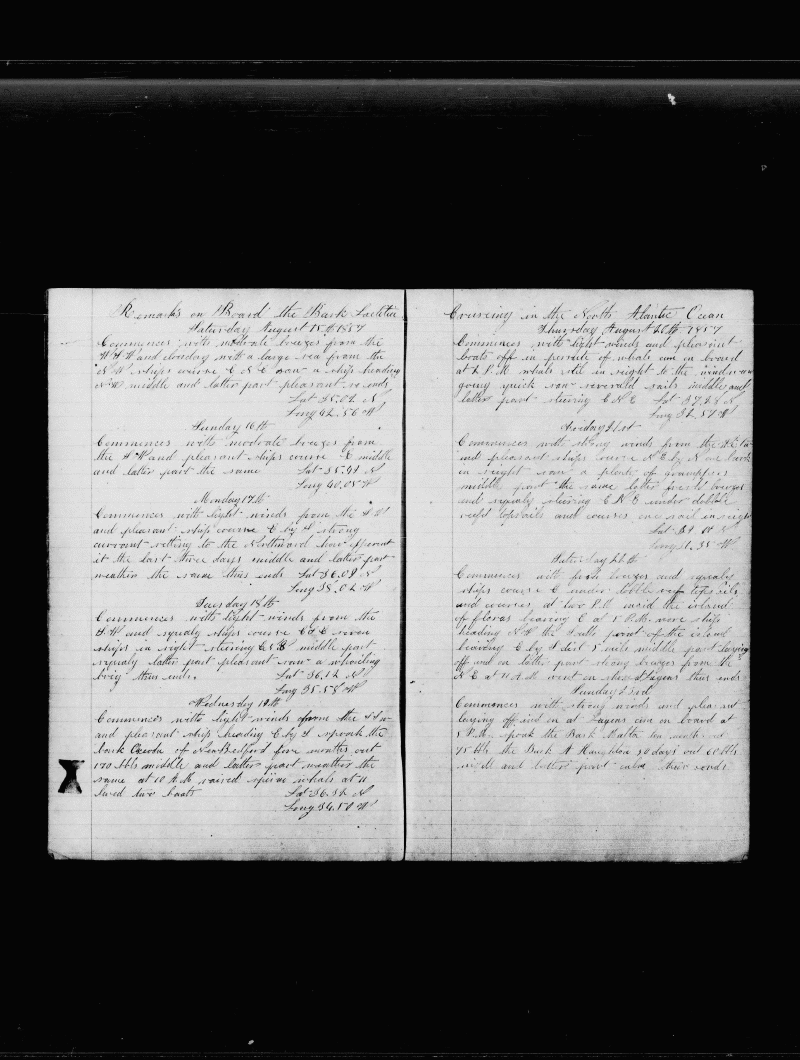 Remarks on Board the Bark Laetitia
Saturday August 15th 1857
Commences with moderate breezes from the
W S W and cloudy with a large sea from the
N W ships course E N E saw a ship heading
N W middle and latter part pleasant so ends
Lat 35.02 N
Long 42.56 W
Sunday 16th
Commences with moderate breezes from
the S W and pleasant ships course E middle
and latter part the same Lat 35.41 N
Long 40.05 W
Monday 17th
Commences with light winds from the S W
and pleasant ships course E by S strong
current setting to the Northward have
it the last three days middle and latter part
weather the same thus ends Lat 36.08 N
Long 38.02 W
Tuesday 18th
Commences with light winds from the
S W and squaly ships course E seven
ships in sight steering middle part
squaly latter part pleasant saw a whaling
brig thus ends. Lat 36.12 N
Long 35.58 W
Wednesday 19th
Commences with light winds from the
and pleasant ship heading E by S sproak the
bark of New Bedford five months out
170 bbls middle and latter part weather the
same at 10 A M raised sperm whale at 11
lowed two boats Lat 36.32 N
Long 34.50 W
Cruising in the North Atlantic Ocean
Thursday August 20th 1857
Commences with light winds and pleasant
boats off in persute of whale com on board
at 2 P.M. whale still in sight to the windward
going quick saw severall sails middle and
latter part steering E N E Lat 37.28 N
Long 32.57 W
Friday 21st
Commences with strong winds from the
and pleasant ships course N E by N one bark
in sight saw a plenty of grampuses
middle part the same latter fresh breezes
and squaly steering E N E under dobble
reeft topsails and courses one sail in sight
Lat 39.01 N
Long 31.35 W
Saturday 22th
Commences with fresh breezes and squaly
ships course E under dobble reef topsails
and courses, at two P.M. maid the island
of flores bearing E at 5 P.M. wore ship
heading the South point of the island
bearing E by S dist 5 mils middle part laying
off and on latter part strong breezes from the
N E at 11 A.M. went on shore thus ends
Sunday 23rd
Commences with strong winds and pleasant
laying off and on at com on board at
5 P.M. spoak the Bark Malta ten months out
75 bbls the Bark A Houghton 30 days out 60 bbls
middle and latter part calm thus ends